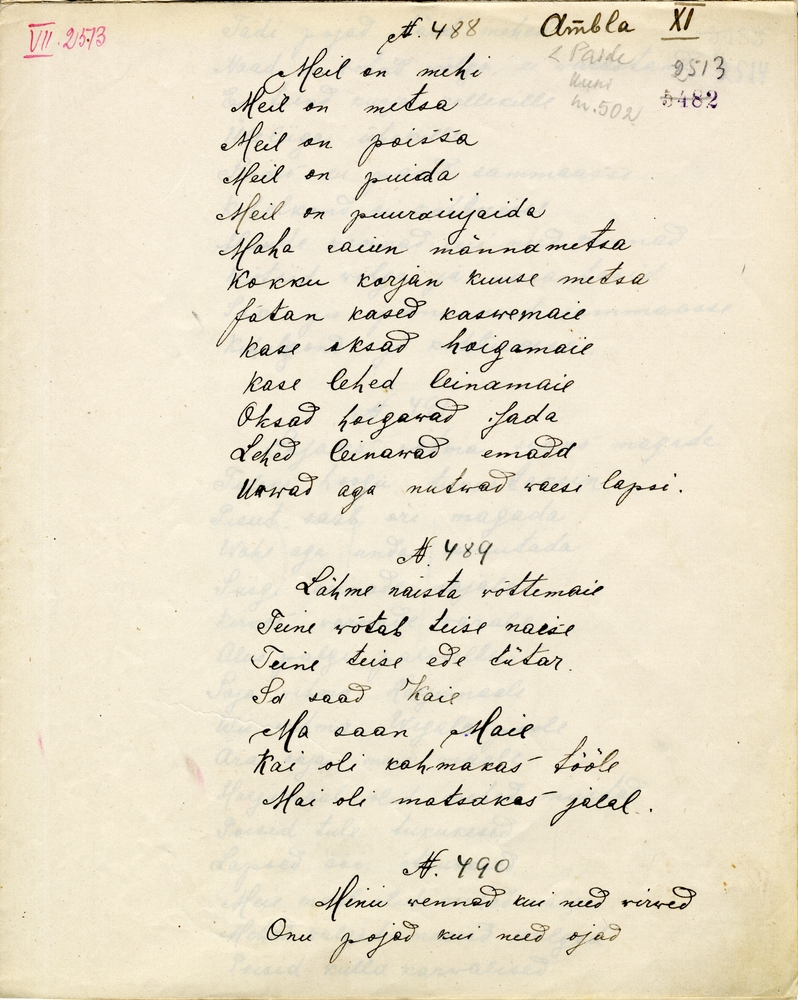 VII. 2513
N. 488
Ambla XI
< Paide
2513
Kuni
5482
nr. 502
Meil on mehi
Meil on metsa
Meil on poissa
Meil on puida
Meil on puuraiujaida
Maha raiun männametsa
Kokku korjan kuuse metsa
Jätan kased kaswemaie
kase oksad hoigamaie
kase lehed leinamaie
Oksad hoigawad Isada
Lehed leinawad emadd
Urwad aga nutwad waesi lapsi.
N. 489
Lähme naista wõttemaie
Teine wõtab teise naese
Teine teise ede tütar.
Sa saad Kaie
Ma saan Maie
Kai oli kahmakas tööle
Mai oli matsakas jalal.
N. 490
Minu wennad kui need wirwed
Onu pojad kui need ojad